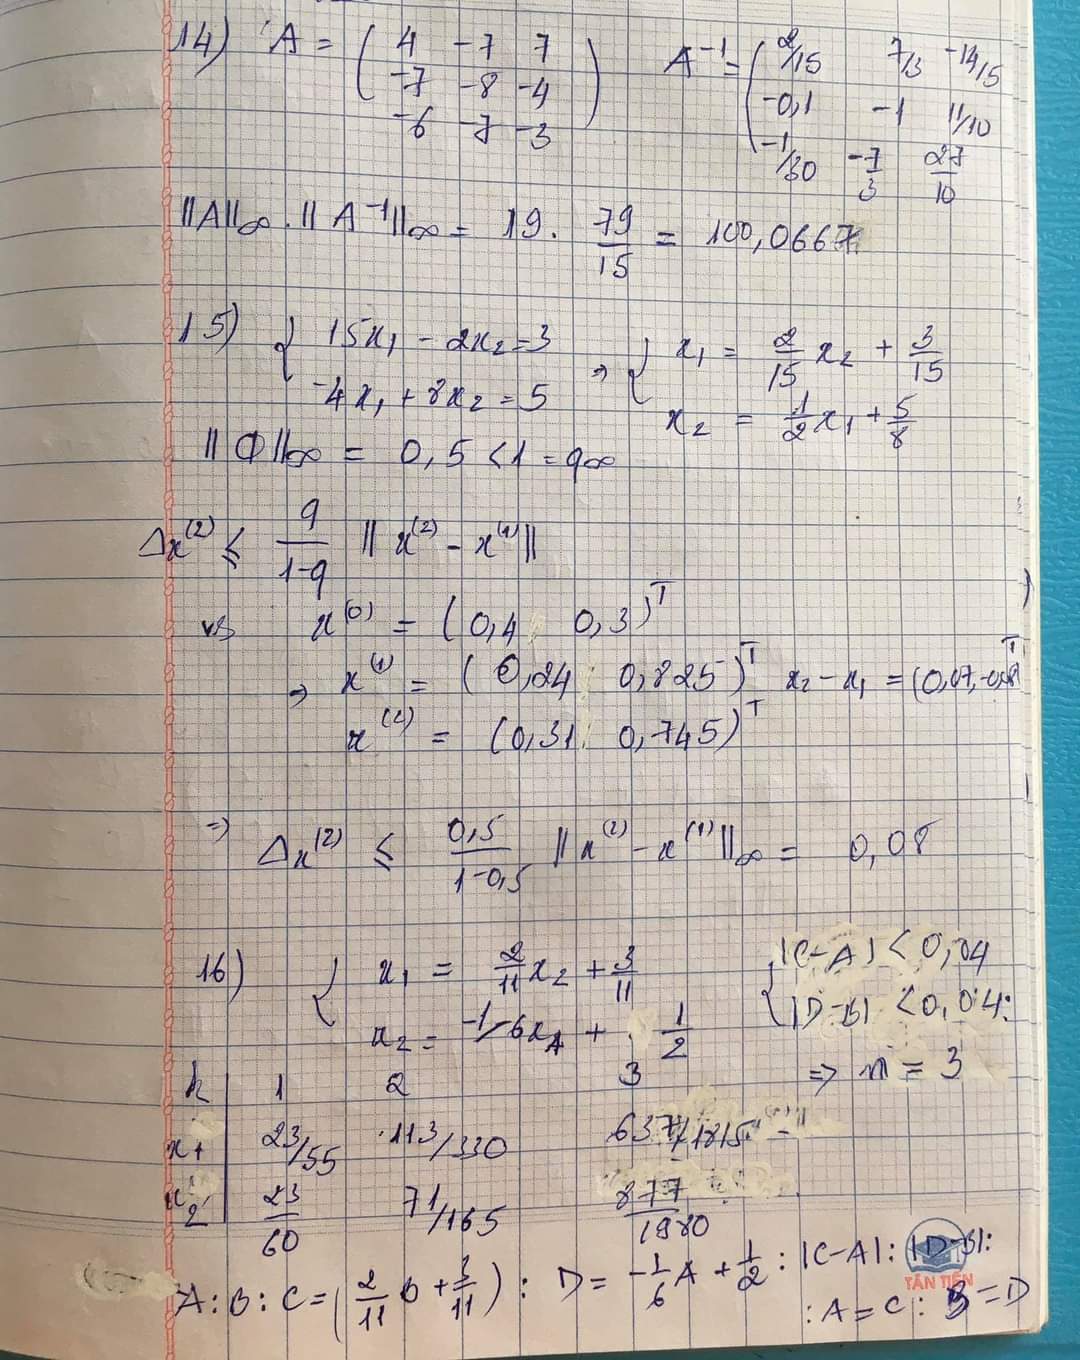 14) A = ( 4 -7 7 A⁻¹ = ( 2/15 7/3 -14/5
-7 -8 -4 ) -0,1 -1 11/10
-6 -7 -3 -1/30 -7/3 27/10
||A||∞ . ||A⁻¹||∞ = 19 . 79/15 = 100,0667
15) { 15x₁ - 2x₂ = 3 ⇒ { x₁ = 2/15 x₂ + 3/15
-4x₁ + 8x₂ = 5 x₂ = 1/2 x₁ + 5/8
||Φ||∞ = 0,5 < 1 = q∞
Δx⁽²⁾ ≤ q/(1-q) ||x⁽²⁾ - x⁽¹⁾||
x⁽⁰⁾ = (0,4 0,3)ᵀ
⇒ x⁽¹⁾ = (0,24 ; 0,825)ᵀ x₂ - x₁ = (0,07, -0,08)ᵀ
x⁽²⁾ = (0,31 ; 0,745)ᵀ
⇒ Δx⁽²⁾ ≤ 0,5/(1-0,5) ||x⁽²⁾ - x⁽¹⁾||∞ = 0,08
16) { x₁ = 2/11 x₂ + 3/11 { |C-A| < 0,04
x₂ = -1/6 x₁ + 1/2 |D-B| < 0,04:
⇒ n = 3
k 1 2 3
x₁ 23/55 113/330 637/1815
x₂ 23/60 71/165 877/1980
A : B : C = (2/11 B + 3/11) : D = -1/6 A + 1/2 : |C-A| : |D-B|:
: A = C : B = D
TÂN TIẾN